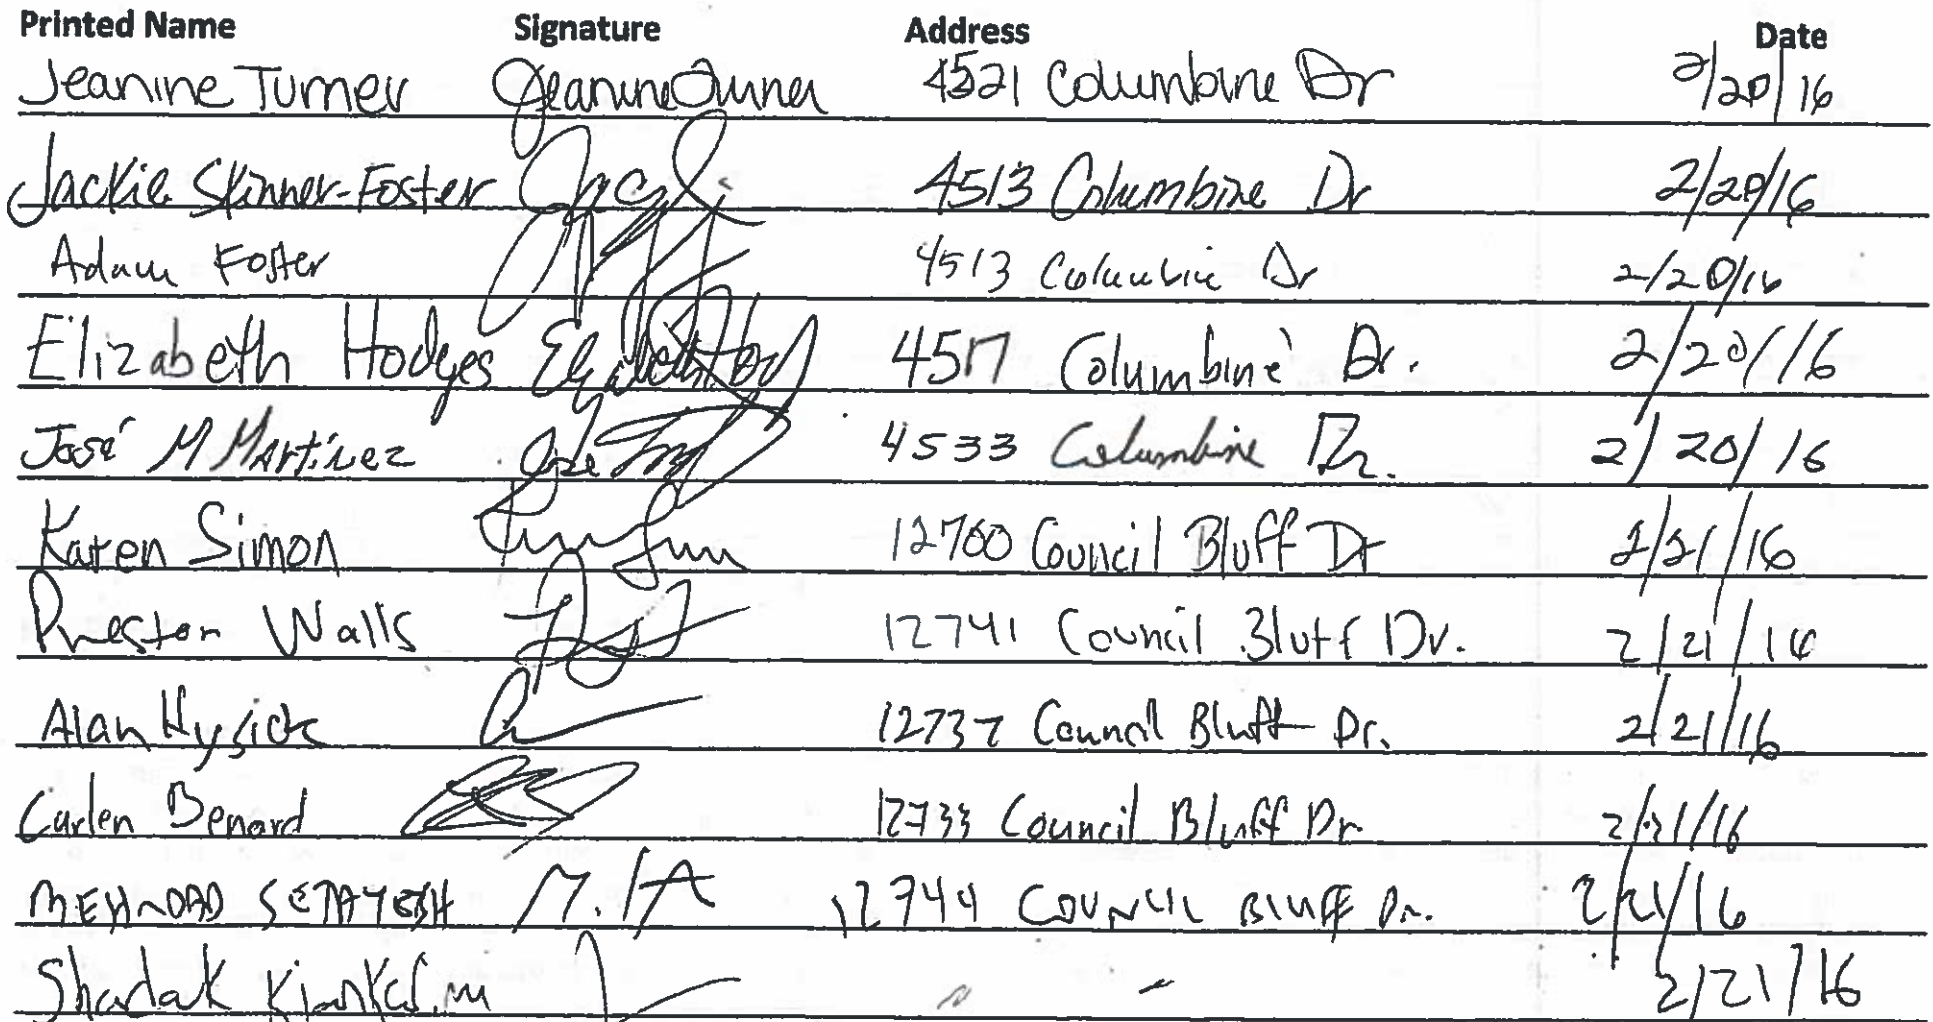 Printed Name Signature Address Date
Jeanine Turner Jeanine Turner 4521 Columbine Dr 2/20/16
Jackie Skinner-Foster 4513 Columbine Dr 2/20/16
Adam Foster 4513 Columbine Dr 2/20/16
Elizabeth Hodges Elizabeth Hodges 4517 Columbine Dr. 2/20/16
José M Martinez 4533 Columbine Dr. 2/20/16
Karen Simon 12700 Council Bluff Dr 2/21/16
Preston Walls 12741 Council Bluff Dr. 2/21/16
Alan Hysick 12737 Council Bluff Dr. 2/21/16
Carlen Benard 12733 Council Bluff Dr. 2/21/16
MEHRDAD SETAYESH 12744 COUNCIL BLUFF Dr. 2/21/16
2/21/16